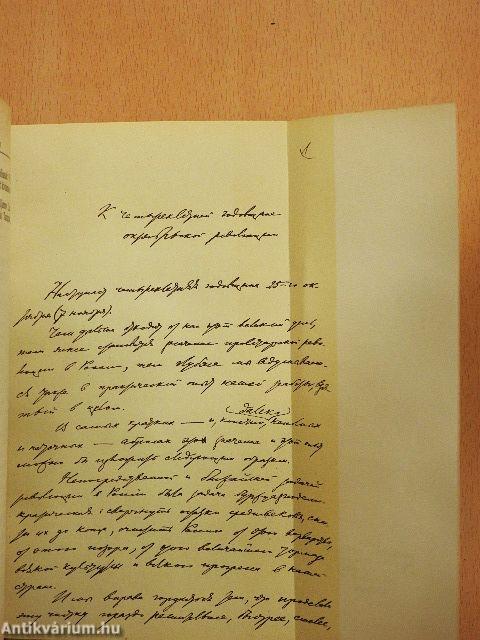 1
К четырехлетней годовщине
октябрьской революции
Наступает четырехлетняя годовщина 25-го ок-
тября (7 ноября).
Чем дальше отходит от нас этот великий день,
тем яснее становится значение пролетарской рево-
люции в России, тем глубже мы вдумываем-
ся также в практический опыт нашей работы, взя-
тый в целом.
В самых кратких — и, конечно, далеко неполных
и неточных — набросках это значение и этот опыт
можно бы изложить следующим образом.
Непосредственной и ближайшей задачей
революции в России была задача буржуазно-де-
мократическая: свергнуть остатки средневековья, сне-
сти их до конца, очистить Россию от этого варварства,
от этого позора, от этого величайшего тормоза
всякой культуры и всякого прогресса в нашей
стране.
И мы вправе гордиться тем, что проделали
эту чистку гораздо решительнее, быстрее, смелее,
Antikvárium.hu